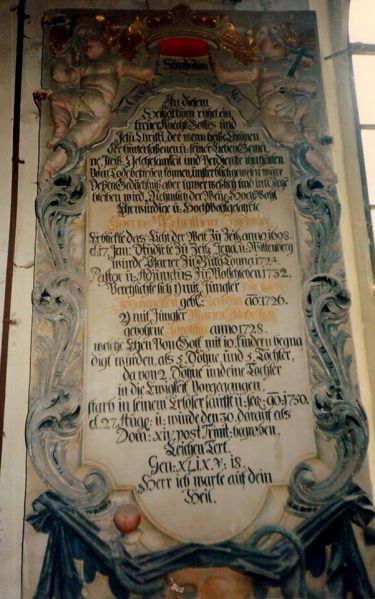 Symbolum
In diesem
Heiligthum ruhet ein
treuer Knecht Gottes und
Jesu Christi, der wenn heiße Thränen
der hinterlaßenen u: seiner lieben Gemei
ne, Fleiß, Gelehrsamkeit und Verdienste
Vom Tode befreÿen können,
Deßen Gedächtnuß aber
bleiben wird, Nehmlich der Weÿ: Hoch Wohl
Ehrwürdige u: Hoch Wohlgelahrte
Herr
Er blickte das Licht der Welt zu Zeitz, anno 1698.
d: 17. Jan: Studirte zu Zeitz, Jena, u: Wittenberg
wurde Pfarrer zu 1724
Pastor u: Adjunctus zu 1732.
Verehligte sich 1) mit Jungfer
gebl: ao: 1726.
2) mit Jungfer
gebohrne anno 1728.
welche Ehen Von Gott mit 10. Kindern begna
digt wurden, als 5. Söhne, und 5. Töchter.
da von 2. Söhne und eine Tochter
in die Ewigkeit Vorgegangen.
starb in seinem Erlöser sanfft u: seelig: ao: 1750.
d. 27. u: wurde den 30. darauf als
Dom: XIV. post Trinit: begraben.
Leichen Text.
Gen: XLIX. V: 18.
Herr ich warte auf dein
Heil.